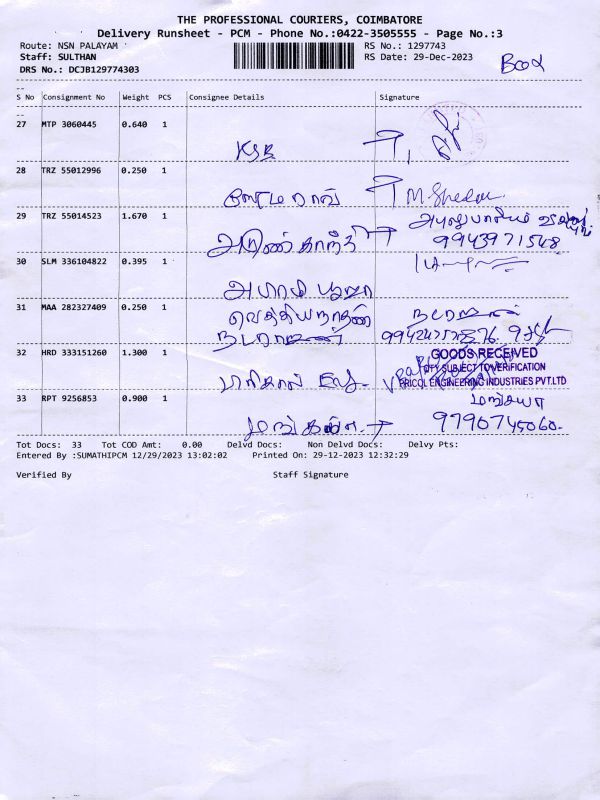 THE PROFESSIONAL COURIERS, COIMBATORE
Delivery Runsheet - PCM - Phone No.:0422-3505555 - Page No.:3
Route: NSN PALAYAM RS No.: 1297743
Staff: SULTHAN RS Date: 29-Dec-2023
DRS No.: DCJB129774303
S No Consignment No Weight PCS Consignee Details Signature
27 MTP 3060445 0.640 1
KSB
28 TRZ 55012996 0.250 1
29 TRZ 55014523 1.670 1
அருண் காந்தி 9943971548
30 SLM 336104822 0.395 1
அபாமி பூஜா
31 MAA 282327409 0.250 1
வெத்தியநாதன் நடராஜன்
நடராஜன்
32 HRD 333151260 1.300 1
GOODS RECEIVED
QTY SUBJECT TO VERIFICATION
PRICOL ENGINEERING INDUSTRIES PVT.LTD
33 RPT 9256853 0.900 1
9790745060
Tot Docs: 33 Tot COD Amt: 0.00 Delvd Docs: Non Delvd Docs: Delvy Pts:
Entered By :SUMATHIPCM 12/29/2023 13:02:02 Printed On: 29-12-2023 12:32:29
Verified By Staff Signature